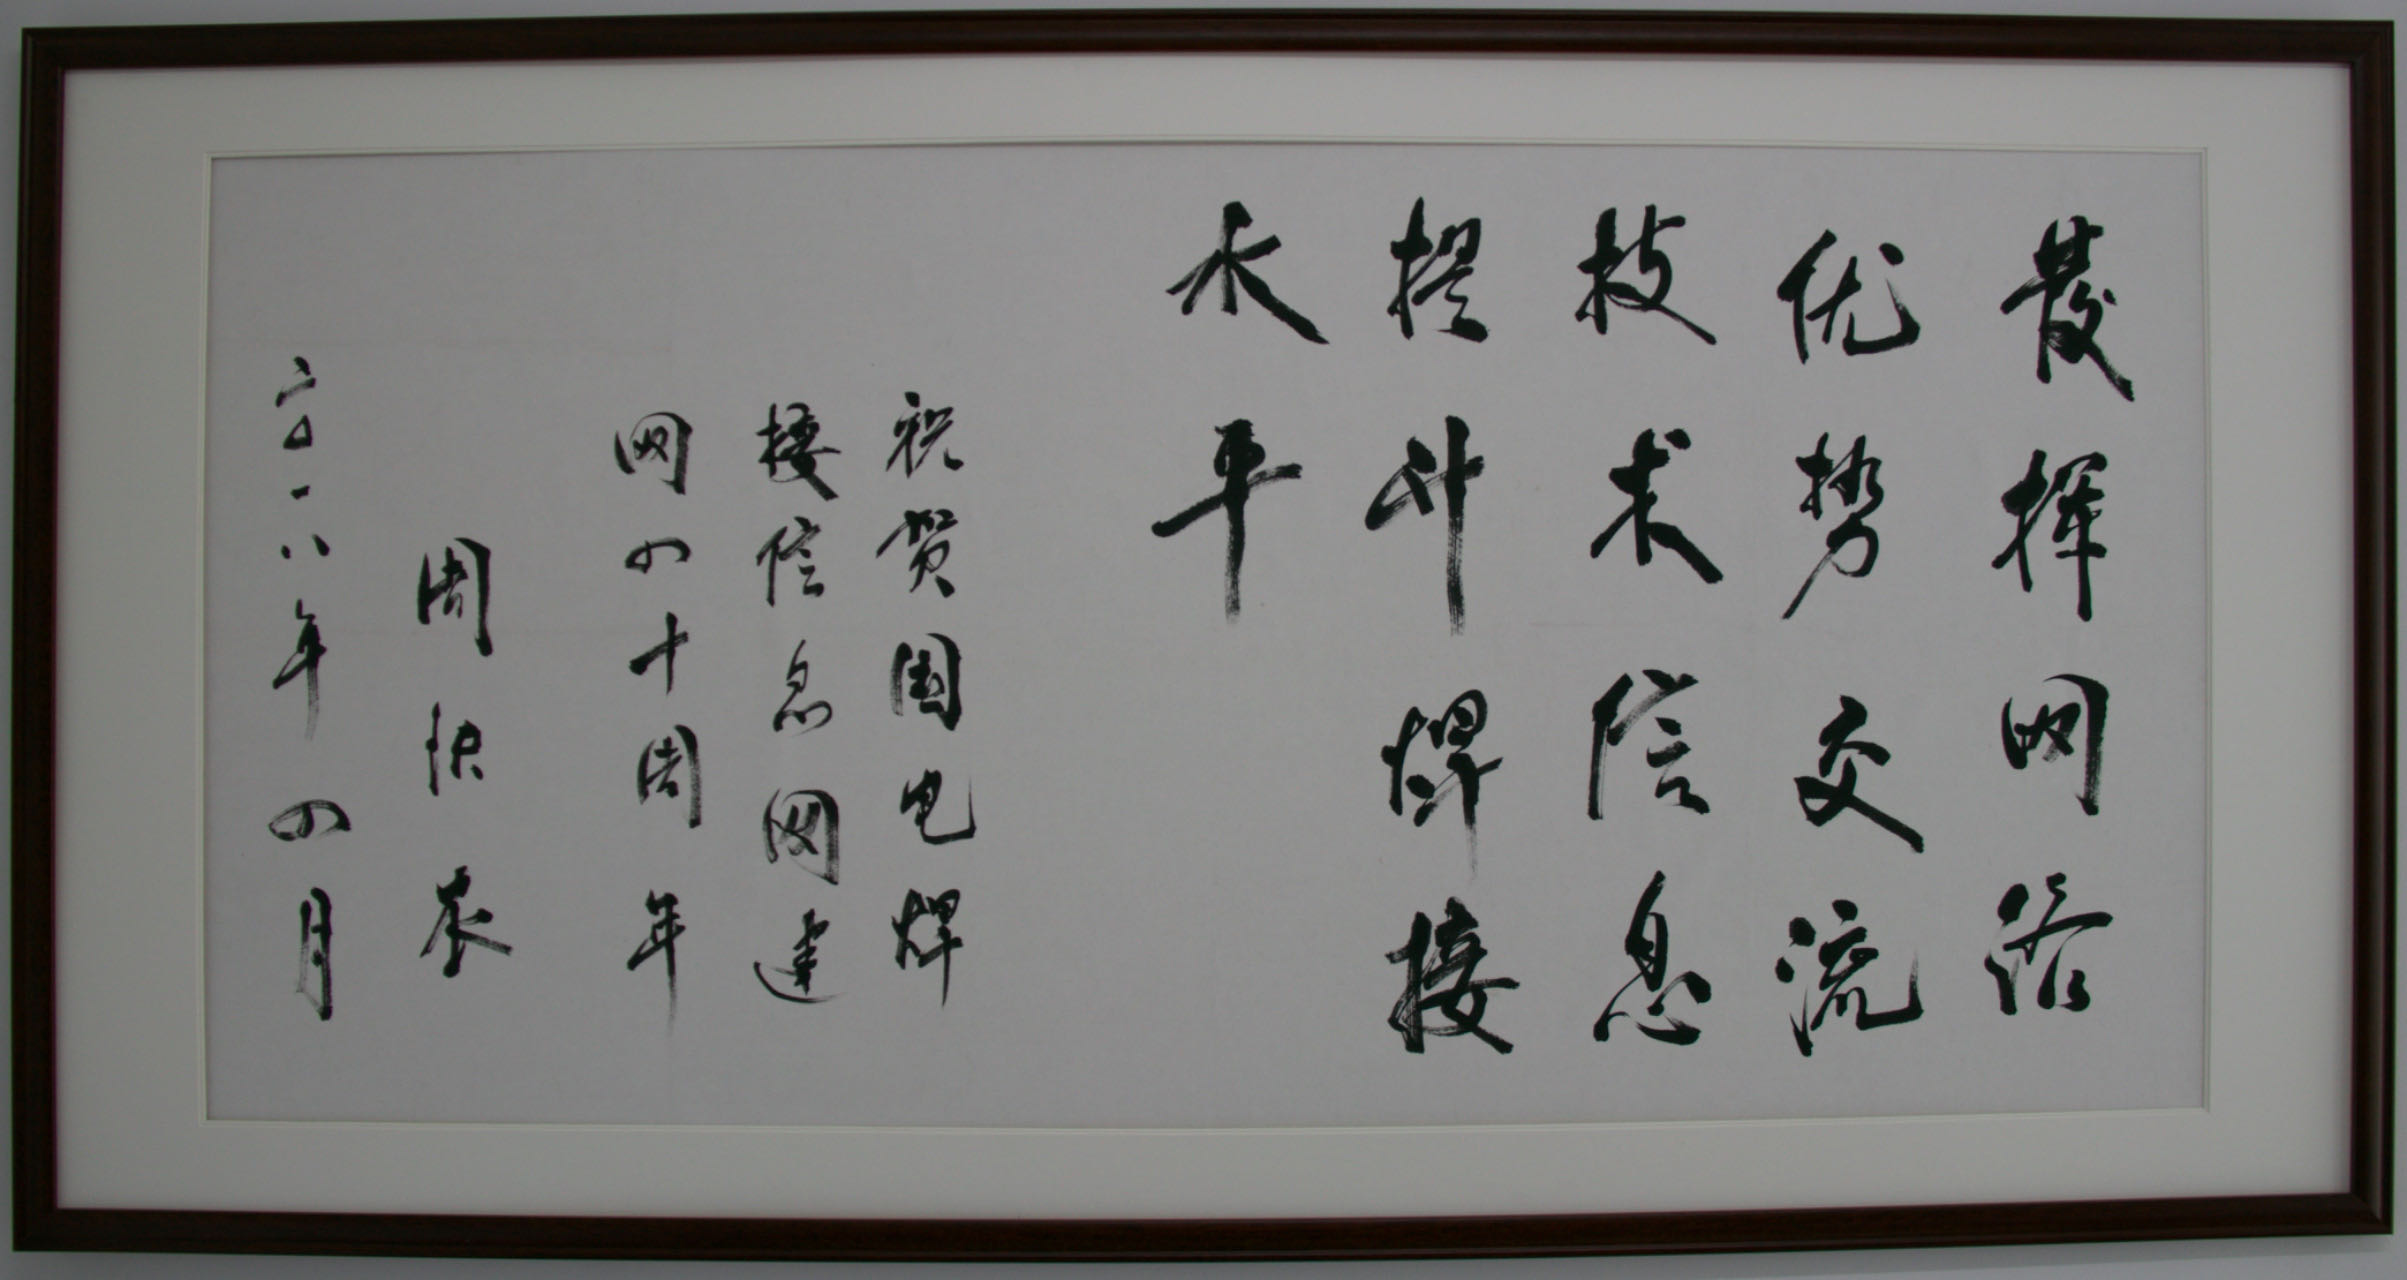 發揮网络
优势交流
技术信息
提升焊接
水平
祝贺国电焊
接信息网建
网四十周年
周
二〇一八年四月